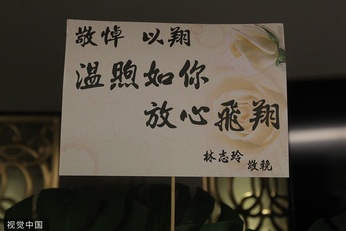 敬悼 以翔
溫煦如你
放心飛翔
林志玲
敬輓
视觉中国